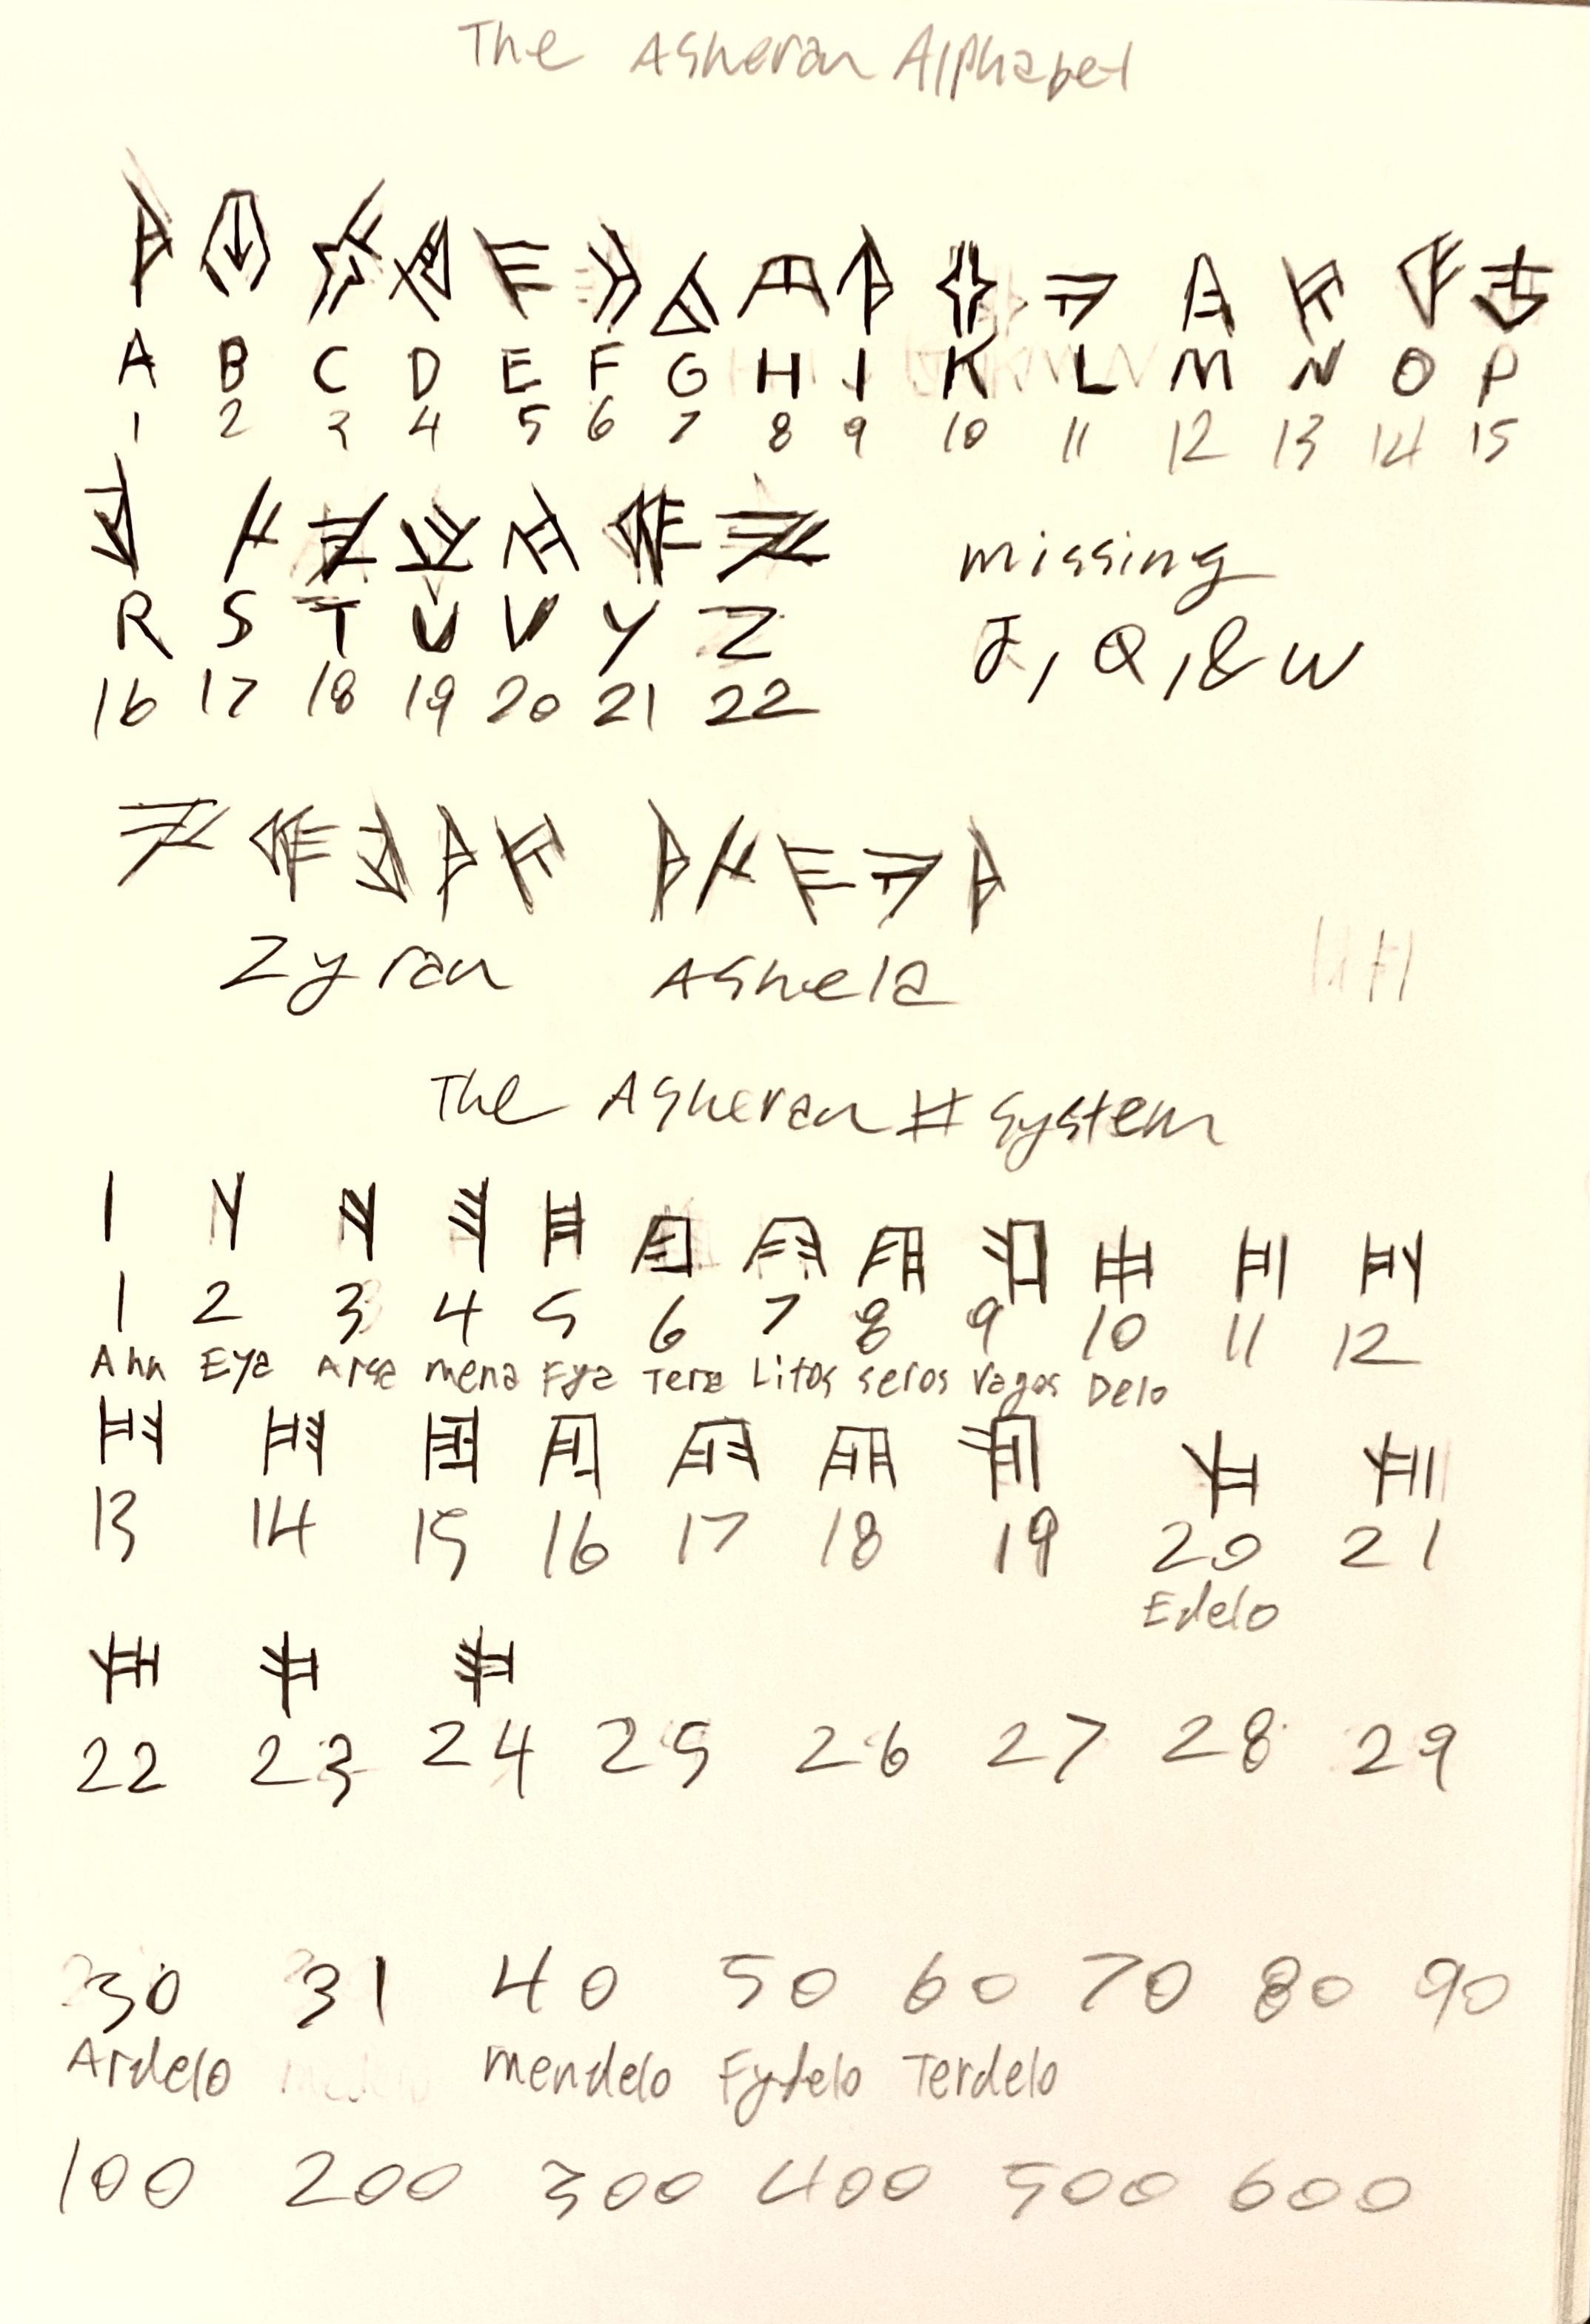 The Asheran Alphabet
A B C D E F G H I K L M N O P
1 2 3 4 5 6 7 8 9 10 11 12 13 14 15
R S T U V Y Z
16 17 18 19 20 21 22
missing
J, Q, & W
Zyran Ashela
The Asheran # System
1 2 3 4 5 6 7 8 9 10 11 12
Eya Arsa mena Fya Tera Litos seros Vagos Delo
13 14 15 16 17 18 19 20 21
Edelo
22 23 24 25 26 27 28 29
30 31 40 50 60 70 80 90
Ardelo mendelo Fydelo Terdelo
100 200 300 400 500 600